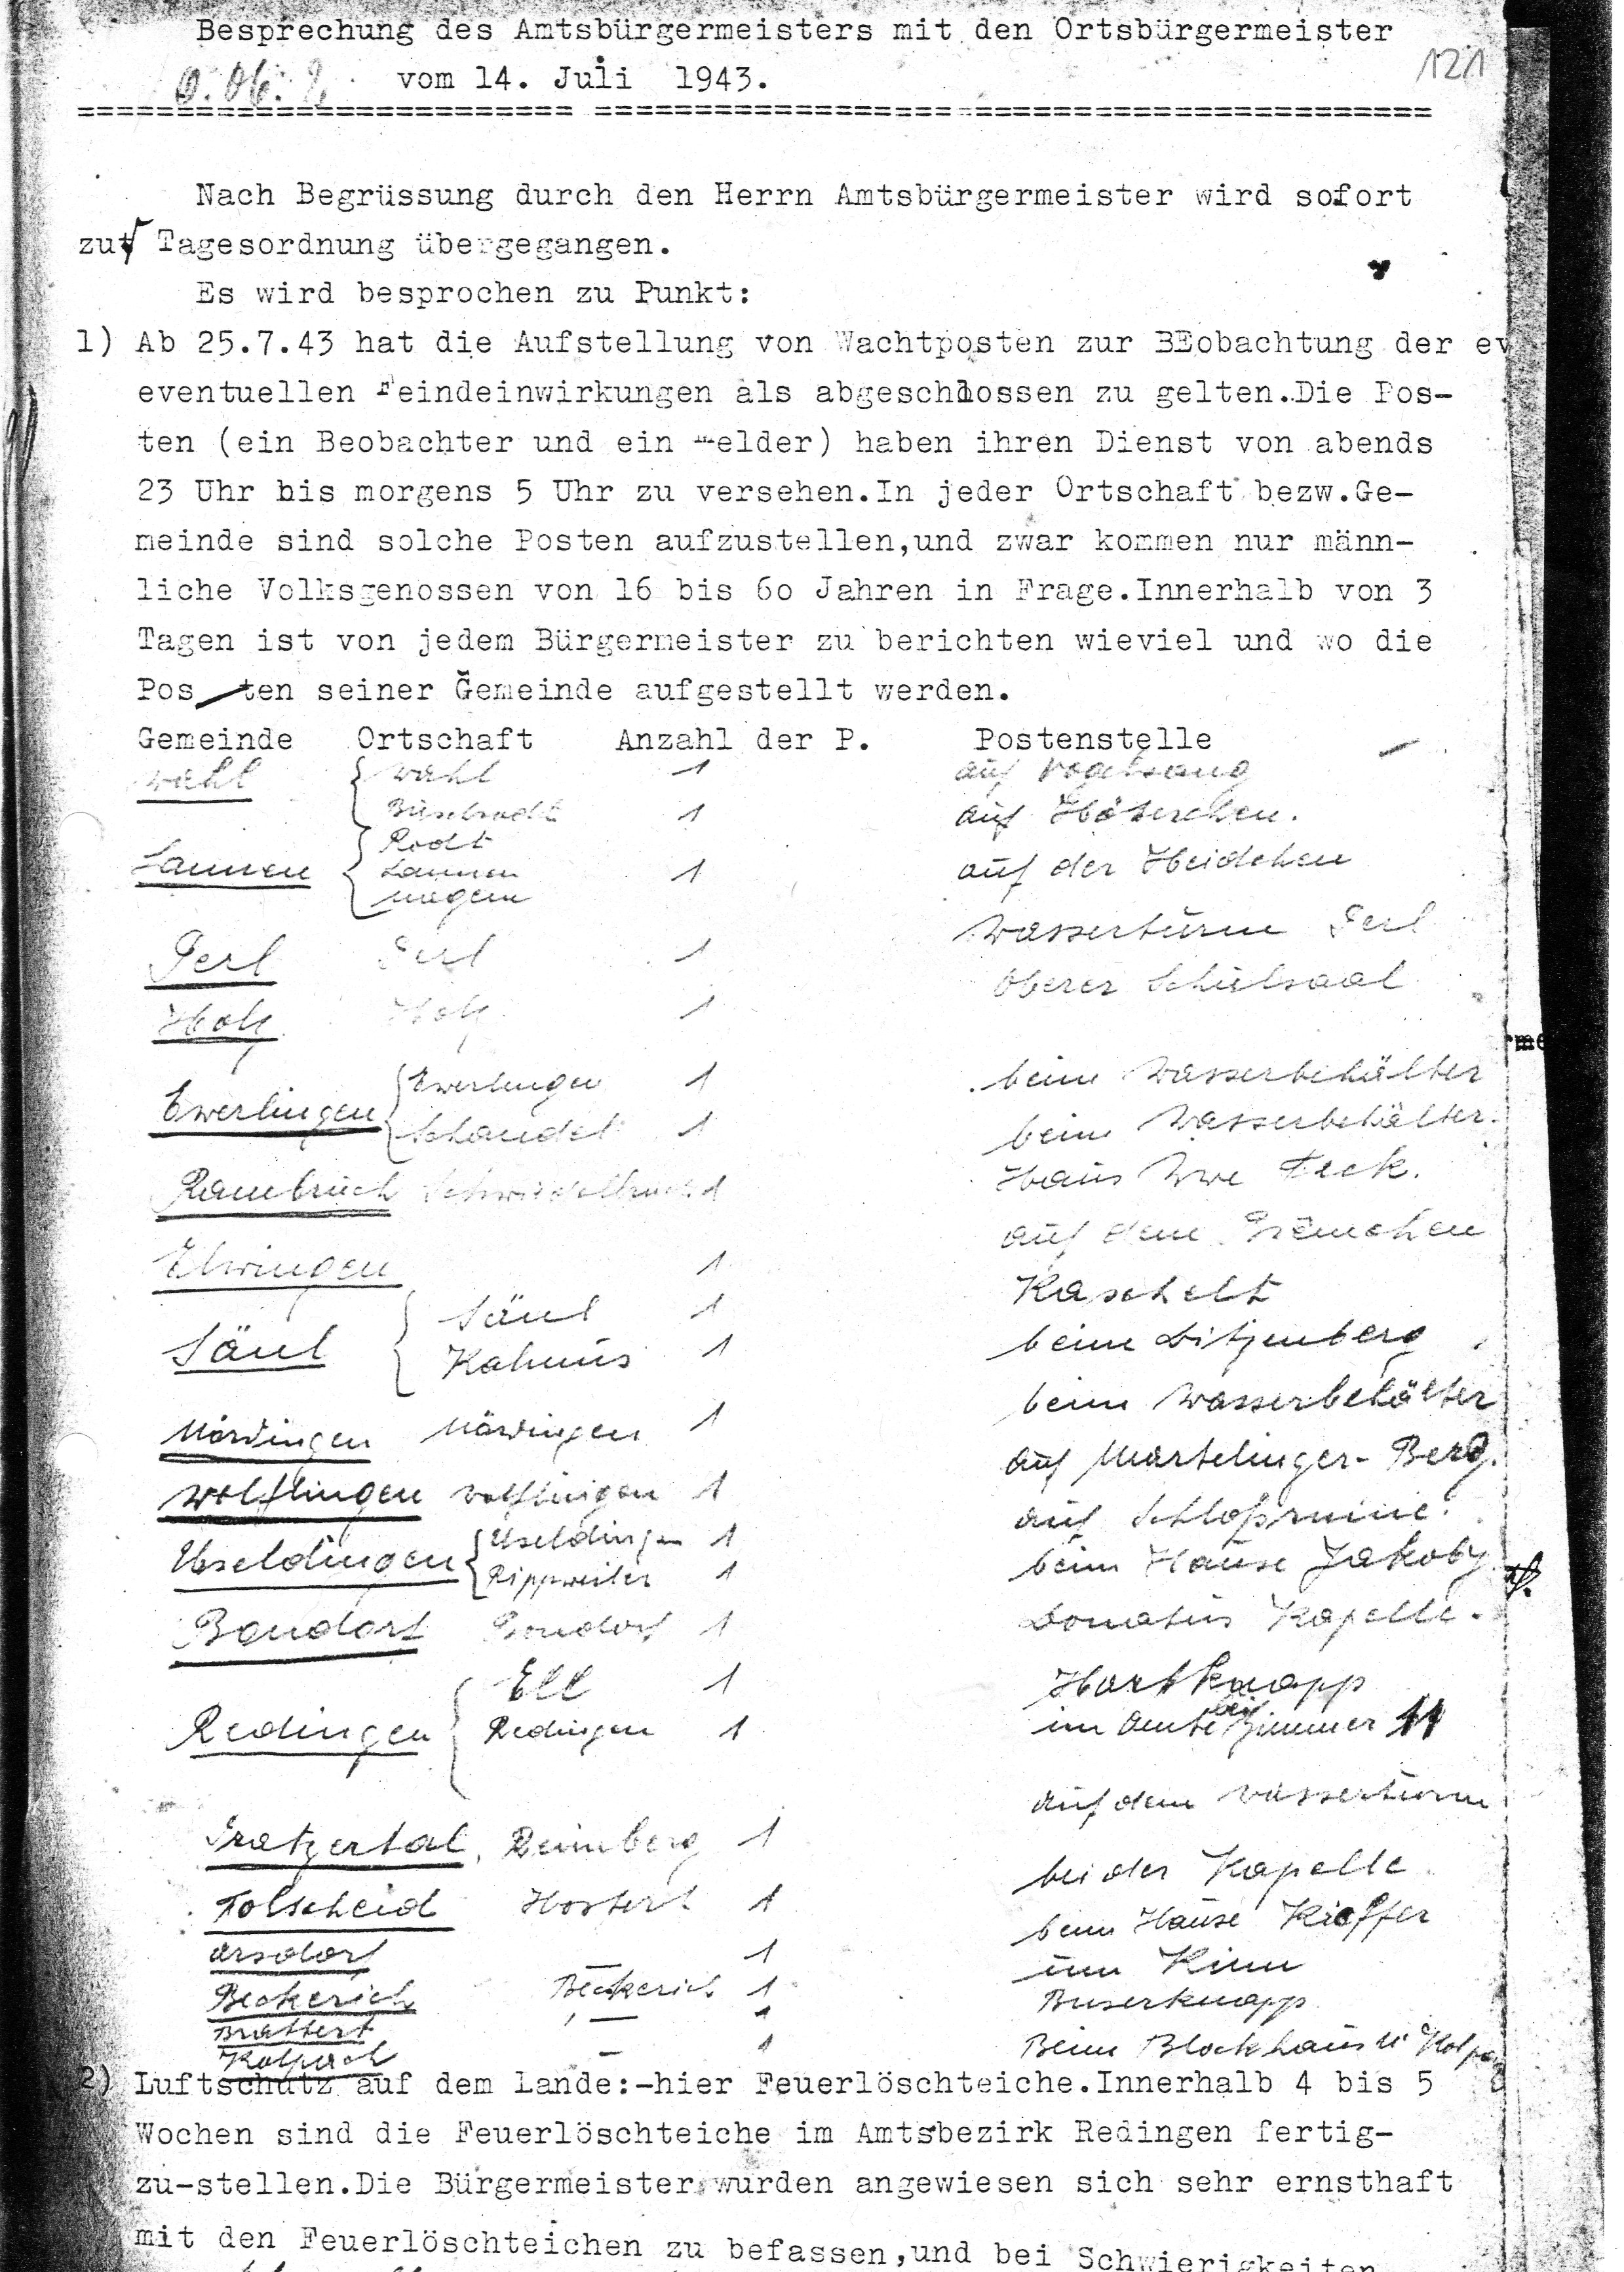 Besprechung des Amtsbürgermeisters mit den Ortsbürgermeister
121
vom 14. Juli 1943.
Nach Begrüssung durch den Herrn Amtsbürgermeister wird sofort
zur Tagesordnung übergegangen.
Es wird besprochen zu Punkt:
1) Ab 25.7.43 hat die Aufstellung von Wachtposten zur BEobachtung der ev
eventuellen Feindeinwirkungen als abgeschlossen zu gelten.Die Pos-
ten (ein Beobachter und ein Melder) haben ihren Dienst von abends
23 Uhr bis morgens 5 Uhr zu versehen.In jeder Ortschaft bezw.Ge-
meinde sind solche Posten aufzustellen,und zwar kommen nur männ-
liche Volksgenossen von 16 bis 6o Jahren in Frage.Innerhalb von 3
Tagen ist von jedem Bürgermeister zu berichten wieviel und wo die
Pos ten seiner Gemeinde aufgestellt werden.
Gemeinde Ortschaft Anzahl der P. Postenstelle
Wahl Wahl 1 auf Vogelsang
Büschrodt 1 auf
Rodt
Lannen Lannen 1 auf der Heidchen
Nagem
Perl Perl 1 Wasserturm Perl
Holz Holz 1 Oberer Schulsaal
Ewerlingen Ewerlingen 1 beim Wasserbehälter
Schandel 1 beim Wasserbehälter.
Rambruch 1 Haus Wwe Feck.
Ehwingen 1 auf dem
Säul Säul 1 Kaschelt
Kalmus 1 beim Litzenberg
Mördingen Mördingen 1 beim Wasserbehälter
Wolflingen Wolflingen 1 auf Martelinger-Berg.
Useldingen Useldingen 1 auf Schloßruine.
Rippweiler 1 beim Hause Jakoby
Bondorf Bondorf 1 Donatus Kapelle.
Redingen Ell 1 Hartknapp
Redingen 1 im Amte Zimmer 11
Pratzertal, Reimberg 1 auf dem Wasserturm
Folscheid Hostert 1 bei der Kapelle
Arsdorf 1 beim Hause Kieffer
Beckerich Beckerich 1 Kinn
Brattert - 1 Buserknapp
Kolpach - 1 Beim Blockhaus
2) Luftschutz auf dem Lande:-hier Feuerlöschteiche.Innerhalb 4 bis 5
Wochen sind die Feuerlöschteiche im Amtsbezirk Redingen fertig-
zu-stellen.Die Bürgermeister wurden angewiesen sich sehr ernsthaft
mit den Feuerlöschteichen zu befassen,und bei Schwierigkeiten